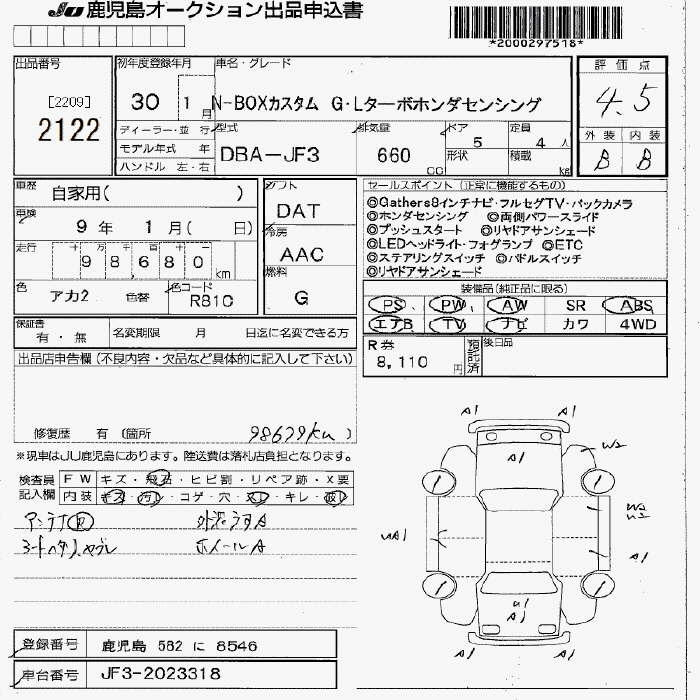 JU 鹿児島オークション出品申込書
*2000297518*
出品番号
[2209]
2122
初年度登録年月
30 1月
車名・グレード
N-BOXカスタム G・Lターボホンダセンシング
評価点
4.5
外装 内装
B B
ディーラー・並行
モデル年式 年
ハンドル 左・右
型式
DBA-JF3
排気量
660 cc
ドア
5
形状
定員
4人
積載
kg
車歴
自家用( )
車検
9年 1月( 日)
走行
98680 km
色
アカ2 色替
色コード
R81C
シフト
DAT
冷房
AAC
燃料
G
セールスポイント (正常に機能するもの)
◎Gathers8インチナビ・フルセグTV・バックカメラ
◎ホンダセンシング ◎両側パワースライド
◎プッシュスタート ◎リヤドアサンシェード
◎LEDヘッドライト・フォグランプ ◎ETC
◎ステアリングスイッチ ◎パドルスイッチ
◎リヤドアサンシェード
装備品(純正品に限る)
PS PW AW SR ABS
エアB TV ナビ カワ 4WD
保証書
有・無
名変期限 月 日迄に名変できる方
R券
8,110 円
預託済
後日品
出品店申告欄(不良内容・欠品など具体的に記入して下さい)
修復歴 有 (箇所 98679km)
※現車はJU鹿児島にあります。陸送費は落札店負担となります。
検査員記入欄
FW キズ・飛石・ヒビ割・リペア跡・X要
内装
コゲ・穴
キレ
アンテナ
外装うすA
ホイールA
A1
A1
A1
W2
W2
A1
A1
A1
登録番号 鹿児島 582 に 8546
車台番号 JF3-2023318